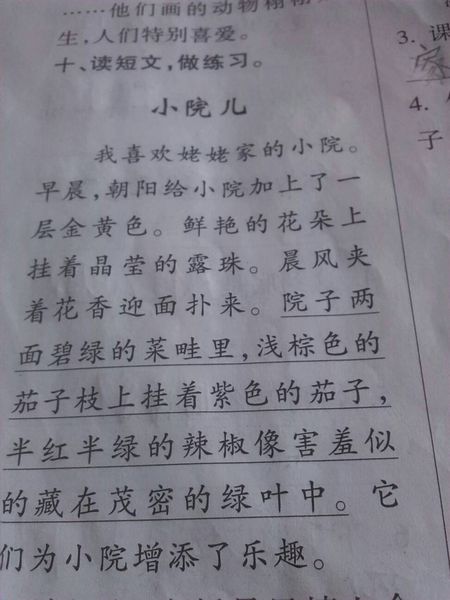 ……他们画的动物栩栩
生，人们特别喜爱。
十、读短文，做练习。
小院儿
我喜欢姥姥家的小院。
早晨，朝阳给小院加上了一
层金黄色。鲜艳的花朵上
挂着晶莹的露珠。晨风夹
着花香迎面扑来。院子两
面碧绿的菜畦里，浅棕色的
茄子枝上挂着紫色的茄子，
半红半绿的辣椒像害羞似
的藏在茂密的绿叶中。它
们为小院增添了乐趣。
3. 课
4.
子